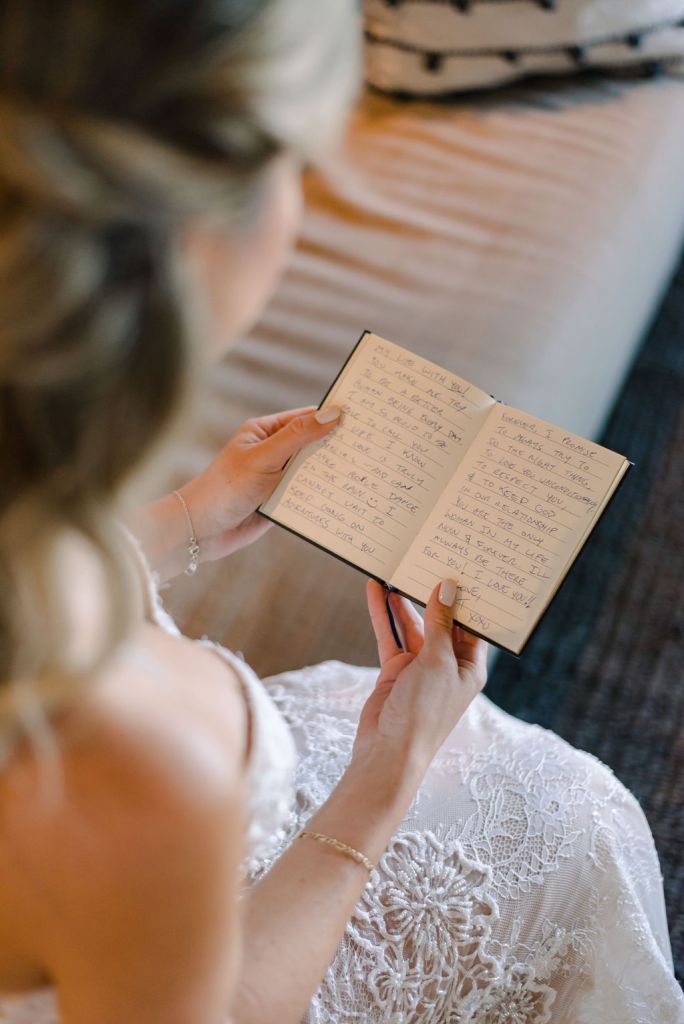 MY LIFE WITH YOU!
YOU MAKE ME TRY
TO BE A BETTER
HUMAN BEING EVERY DAY
I AM SO PROUD TO BE
TO CALL YOU
LIFE. I KNOW
LOVE IS TRULY
AND CAN
PEOPLE DANCE
IN THE RAIN
CANNOT WAIT TO
KEEP GOING ON
ADVENTURES WITH YOU
FOREVER, I PROMISE
TO ALWAYS TRY TO
DO THE RIGHT THING,
TO LOVE YOU UNCONDITIONALLY
TO RESPECT YOU,
& TO KEEP GOD
IN OUR RELATIONSHIP
YOU ARE THE ONLY
WOMAN IN MY LIFE
NOW & FOREVER. ILL
ALWAYS BE THERE
FOR YOU! I LOVE YOU!!
LOVE,
XOXO